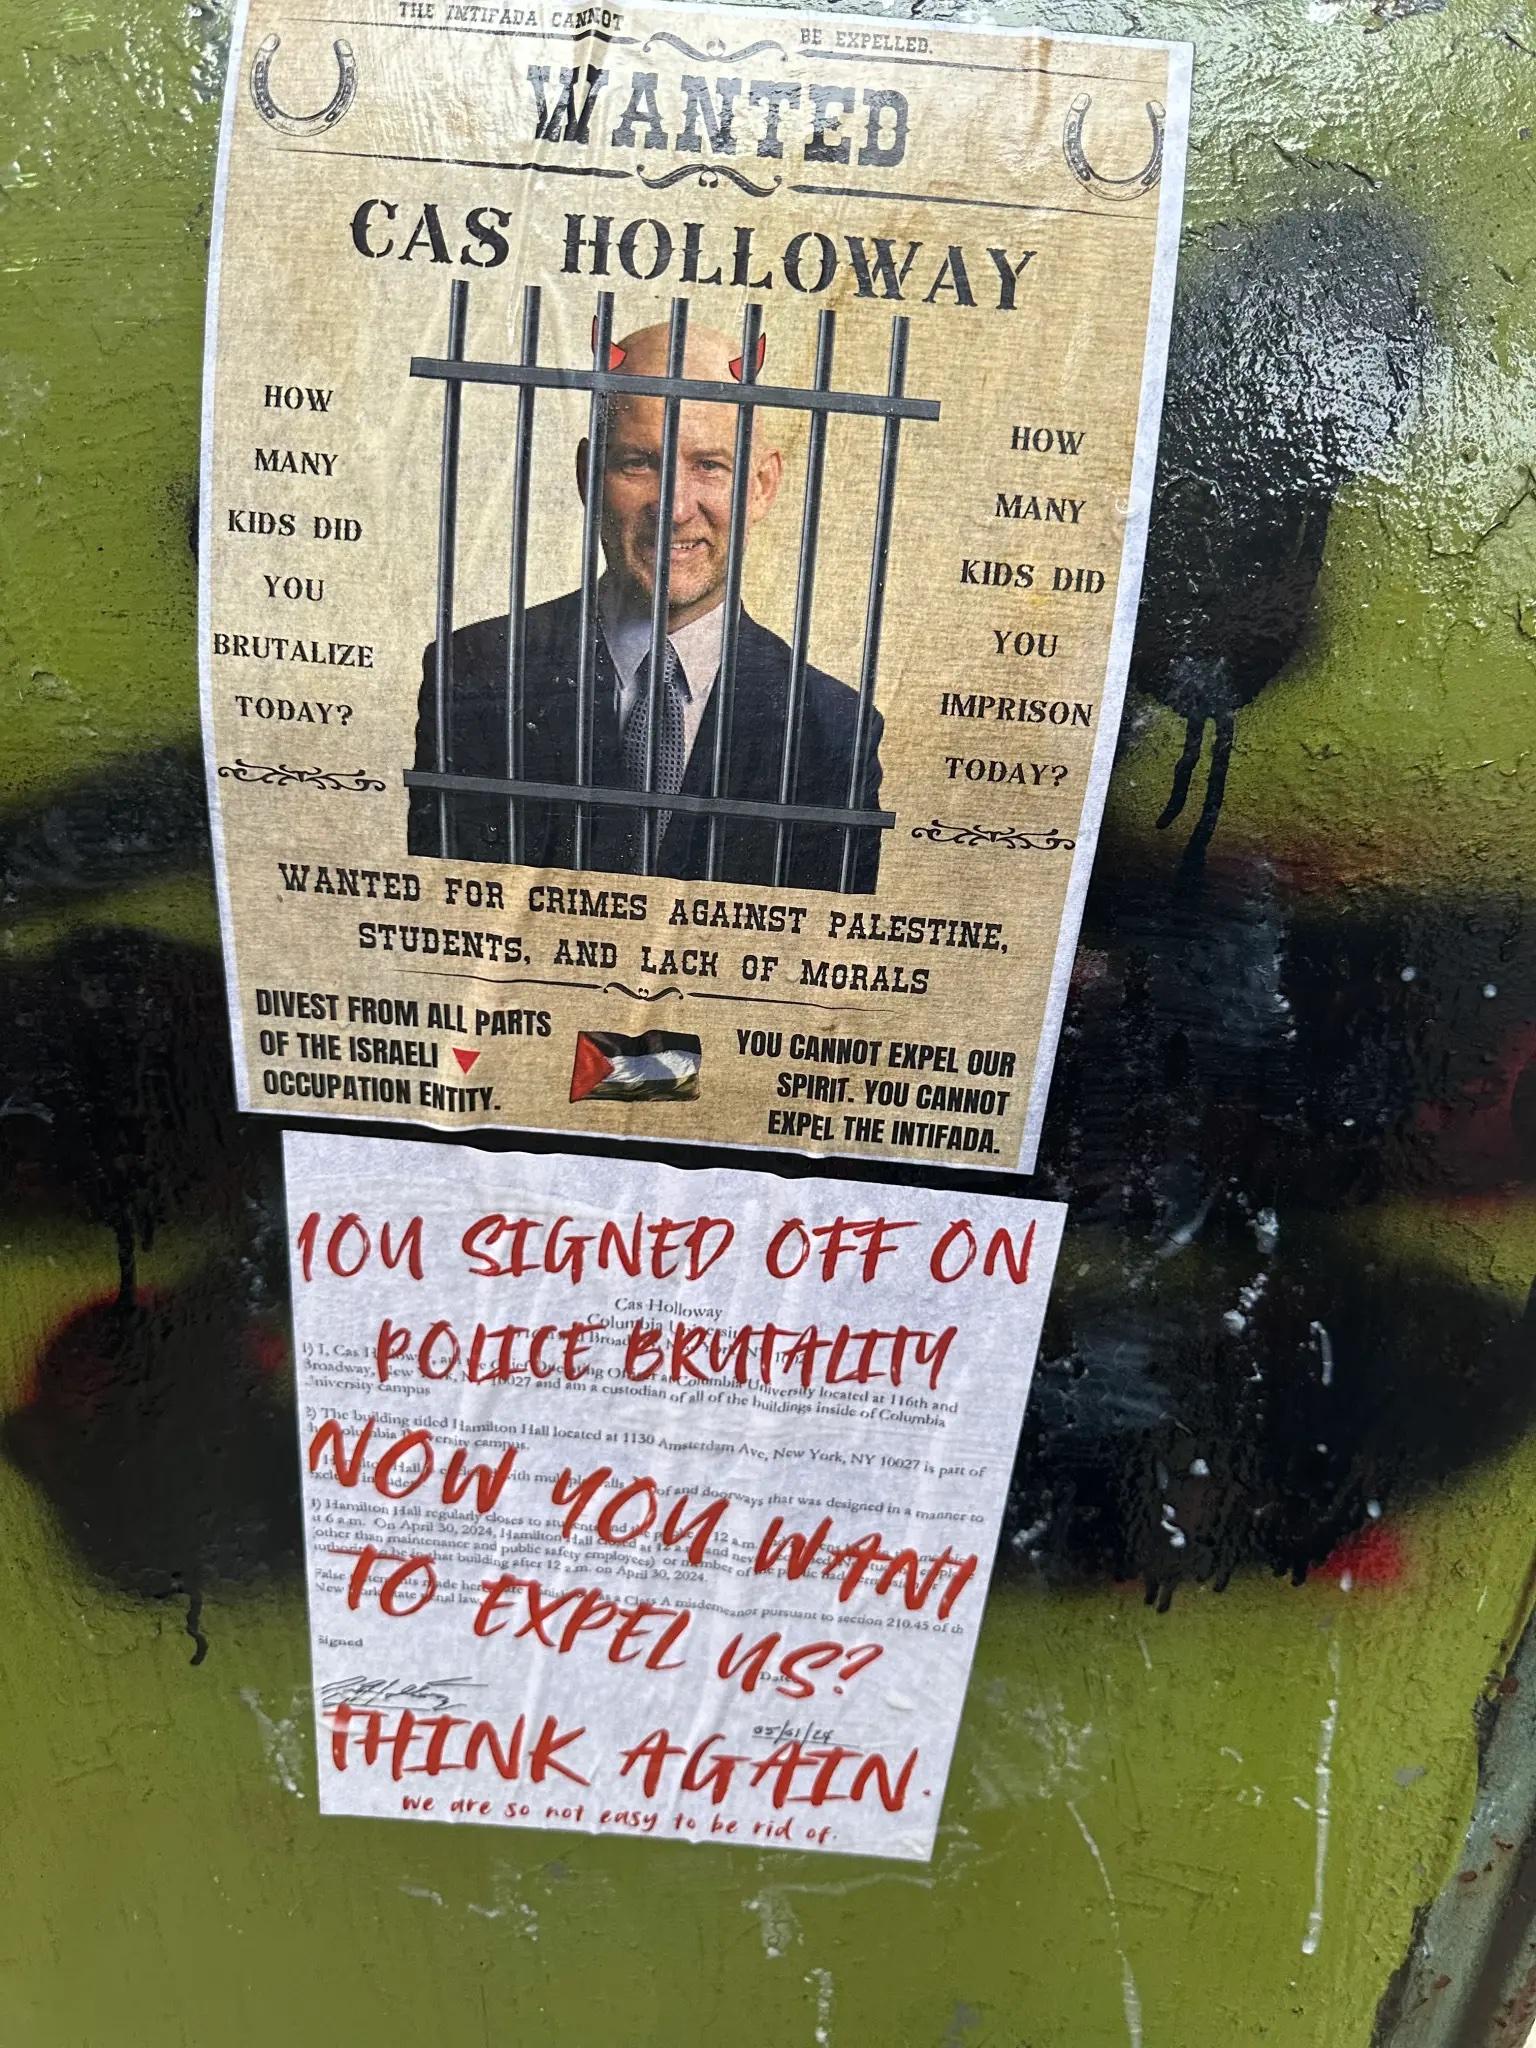 THE INTIFADA CANNOT BE EXPELLED.
WANTED
CAS HOLLOWAY
HOW
MANY
KIDS DID
YOU
BRUTALIZE
TODAY?
HOW
MANY
KIDS DID
YOU
IMPRISON
TODAY?
WANTED FOR CRIMES AGAINST PALESTINE,
STUDENTS, AND LACK OF MORALS
DIVEST FROM ALL PARTS
OF THE ISRAELI
OCCUPATION ENTITY.
YOU CANNOT EXPEL OUR
SPIRIT. YOU CANNOT
EXPEL THE INTIFADA.
YOU SIGNED OFF ON
Cas Holloway
Columbia
POLICE BRUTALITY
1) I, Cas Officer at Columbia University located at 116th and
Broadway, New 10027 and am a custodian of all of the buildings inside of Columbia
University campus
2) The building titled Hamilton Hall located at 1130 Amsterdam Ave, New York, NY 10027 is part of
campus.
NOW YOU WANT
of and doorways that was designed in a manner to
Hamilton Hall regularly closes to 12 a.m.
at 6 a.m. On April 30, 2024, Hamilton Hall at 12 and
(other than maintenance and public safety employees) or member of the
in that building after 12 a.m. on April 30, 2024.
TO EXPEL US?
False made Class A misdemeanor pursuant to section 210.45 of th
New law.
Signed
Date
05/01/24
THINK AGAIN.
we are so not easy to be rid of.